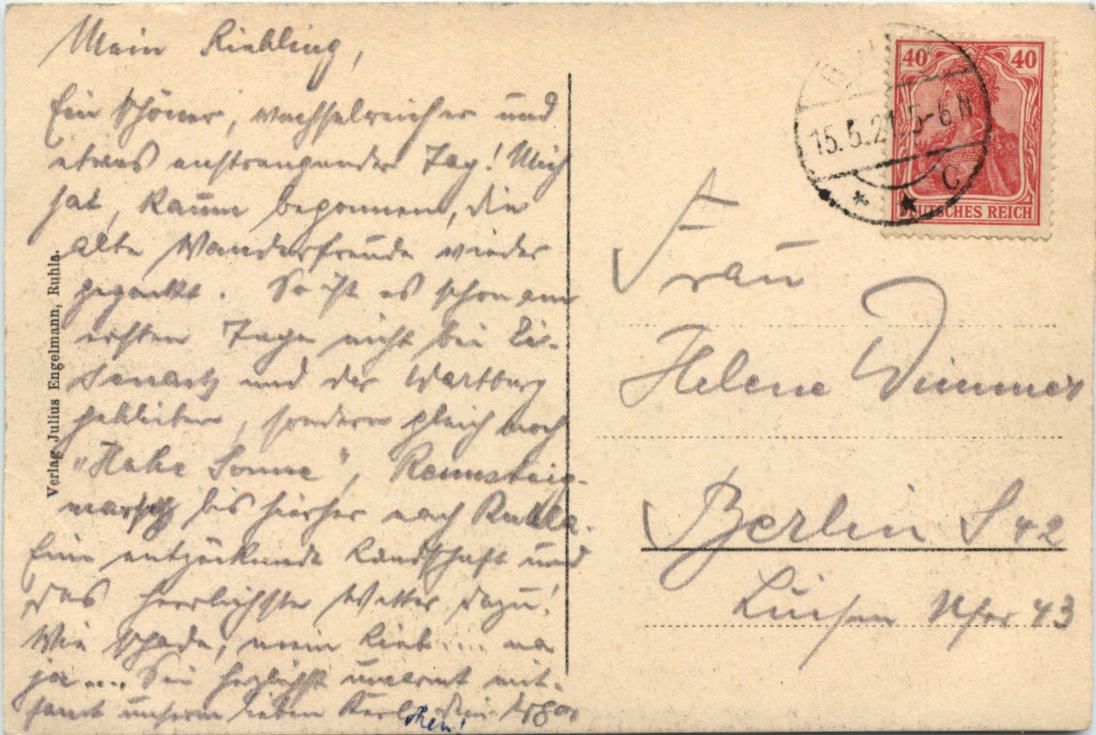 Mein Liebling,
Ein schöner, wechselreicher und
etwas anstrengender Tag! Mich
hat, kaum begonnen, die
alte Wanderfreude wieder
gepackt. So ist es schon am
ersten Tage nicht bei Ei-
senach und der Wartburg
geblieben, sondern gleich noch
"Hohe Sonne", Rennsteig-
marsch bis hierher nach Ruhla.
Eine entzückende Landschaft und
das herrlichste Wetter dazu!
Wie schade, mein Lieb.... na
ja.... Sei herzlichst umarmt mit-
samt unserm lieben Kerlchen! Dein
Verlag Julius Engelmann, Ruhla.
40 40
DEUTSCHES REICH
15.5.21 5-6 N
C
Frau
Helene Wimmer
Berlin S 42
Luisen Ufer 43